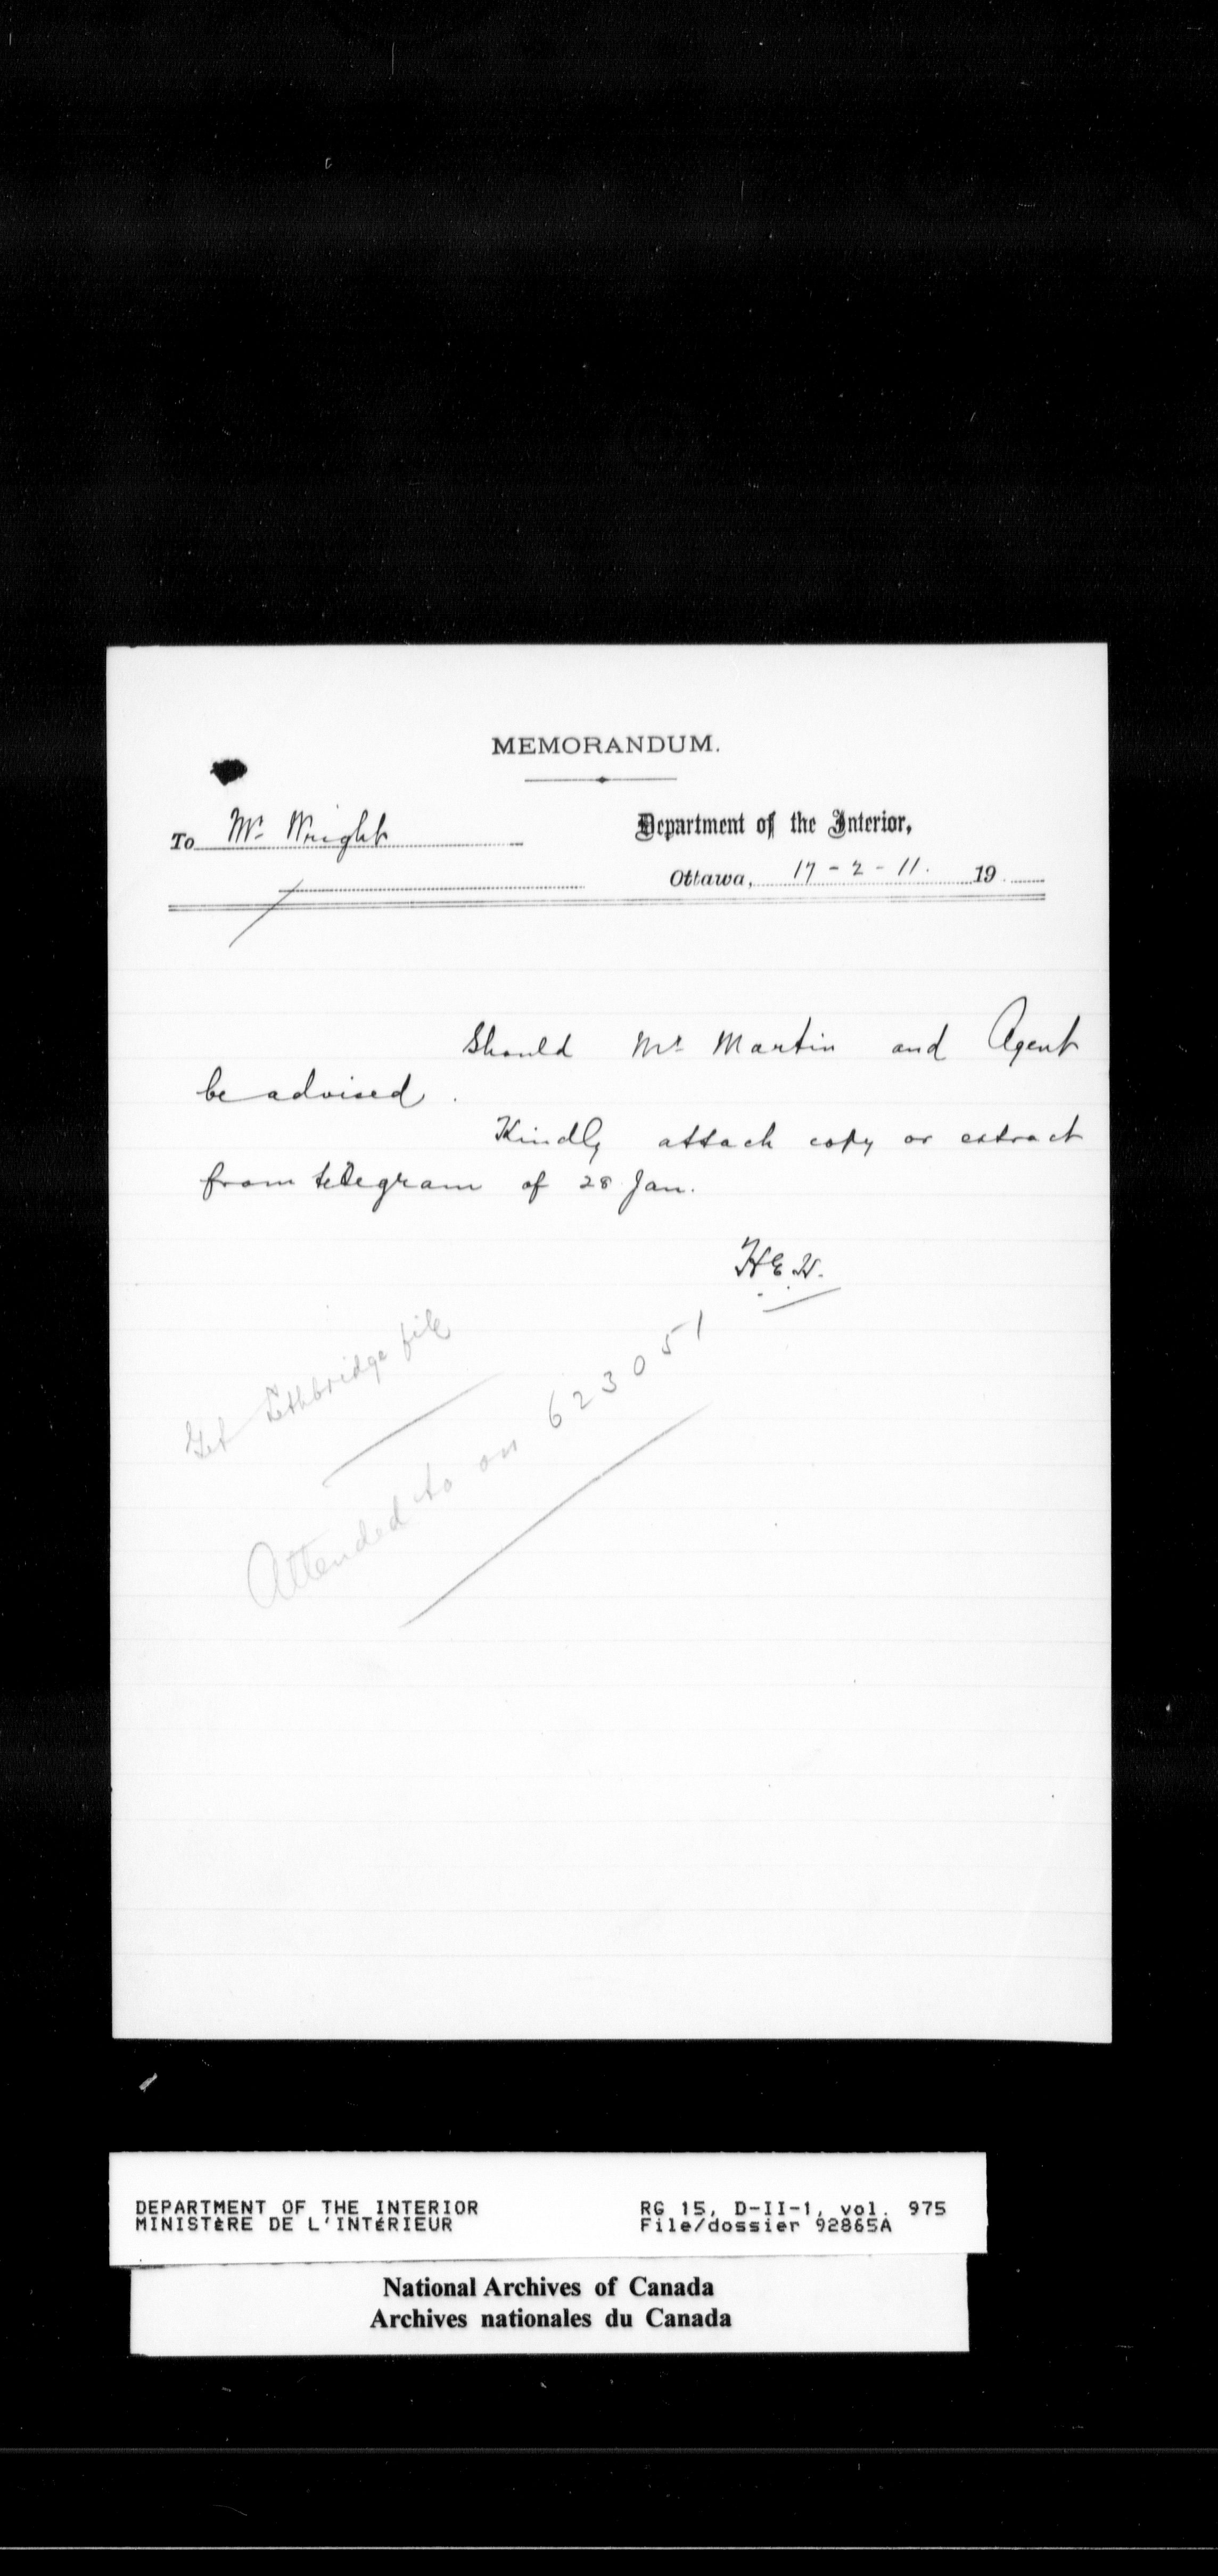 MEMORANDUM.
To Mr. Wright
Department of the Interior,
Ottawa, 17-2-11. 19
Should Mr. Martin and Agent
be advised.
Kindly attach copy or extract
from telegram of 28 Jan.
H.E.H.
Get Lethbridge file
Attended to on 623051
DEPARTMENT OF THE INTERIOR
MINISTÈRE DE L'INTÉRIEUR
RG 15, D-II-1, vol. 975
File/dossier 92865A
National Archives of Canada
Archives nationales du Canada